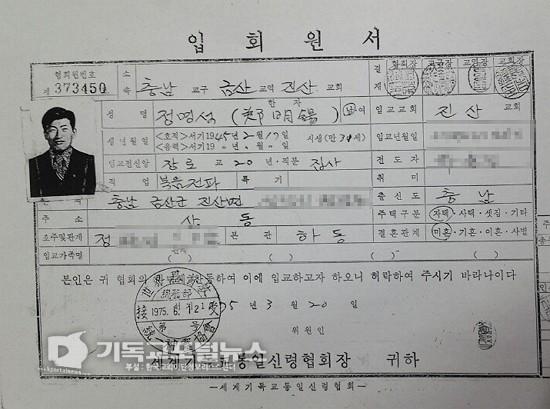 입회원서
협회원번호
제 373450
소속 충남 교구 금산 교역 진산 교회
결재 교회장
한자
성명 정명석 (鄭明錫) 남·여
입교교회 진산 교회
생년월일 <호적>서기1945년 2월 17일
<음력>서기19 년 월 일 시생(만 30세)
입교년월일
입교전신앙 장로교 20년·직분 집사
전도자
직업 복음전파 특기
취미
본적 충남 금산군 진산면
출신도 충남
주소 상동
주택구분 자택·사택·셋집·기타
호주및관계 정
본관 하동
결혼관계 미혼·기혼·이혼·사별
입교가족명
본인은 귀 협회의 동하여 이에 입교하고자 하오니 허락하여 주시기 바라나이다
75년 3월 20일
接 1975. 6. 12 受
위원인
세계기독교통일신령협회장 귀하
기독교포털뉴스
부설:한국교회이단정보리소스센터
―세계기독교통일신령협회―